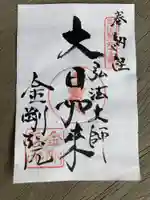 奉納経
弘法大師
大日如来
金剛院